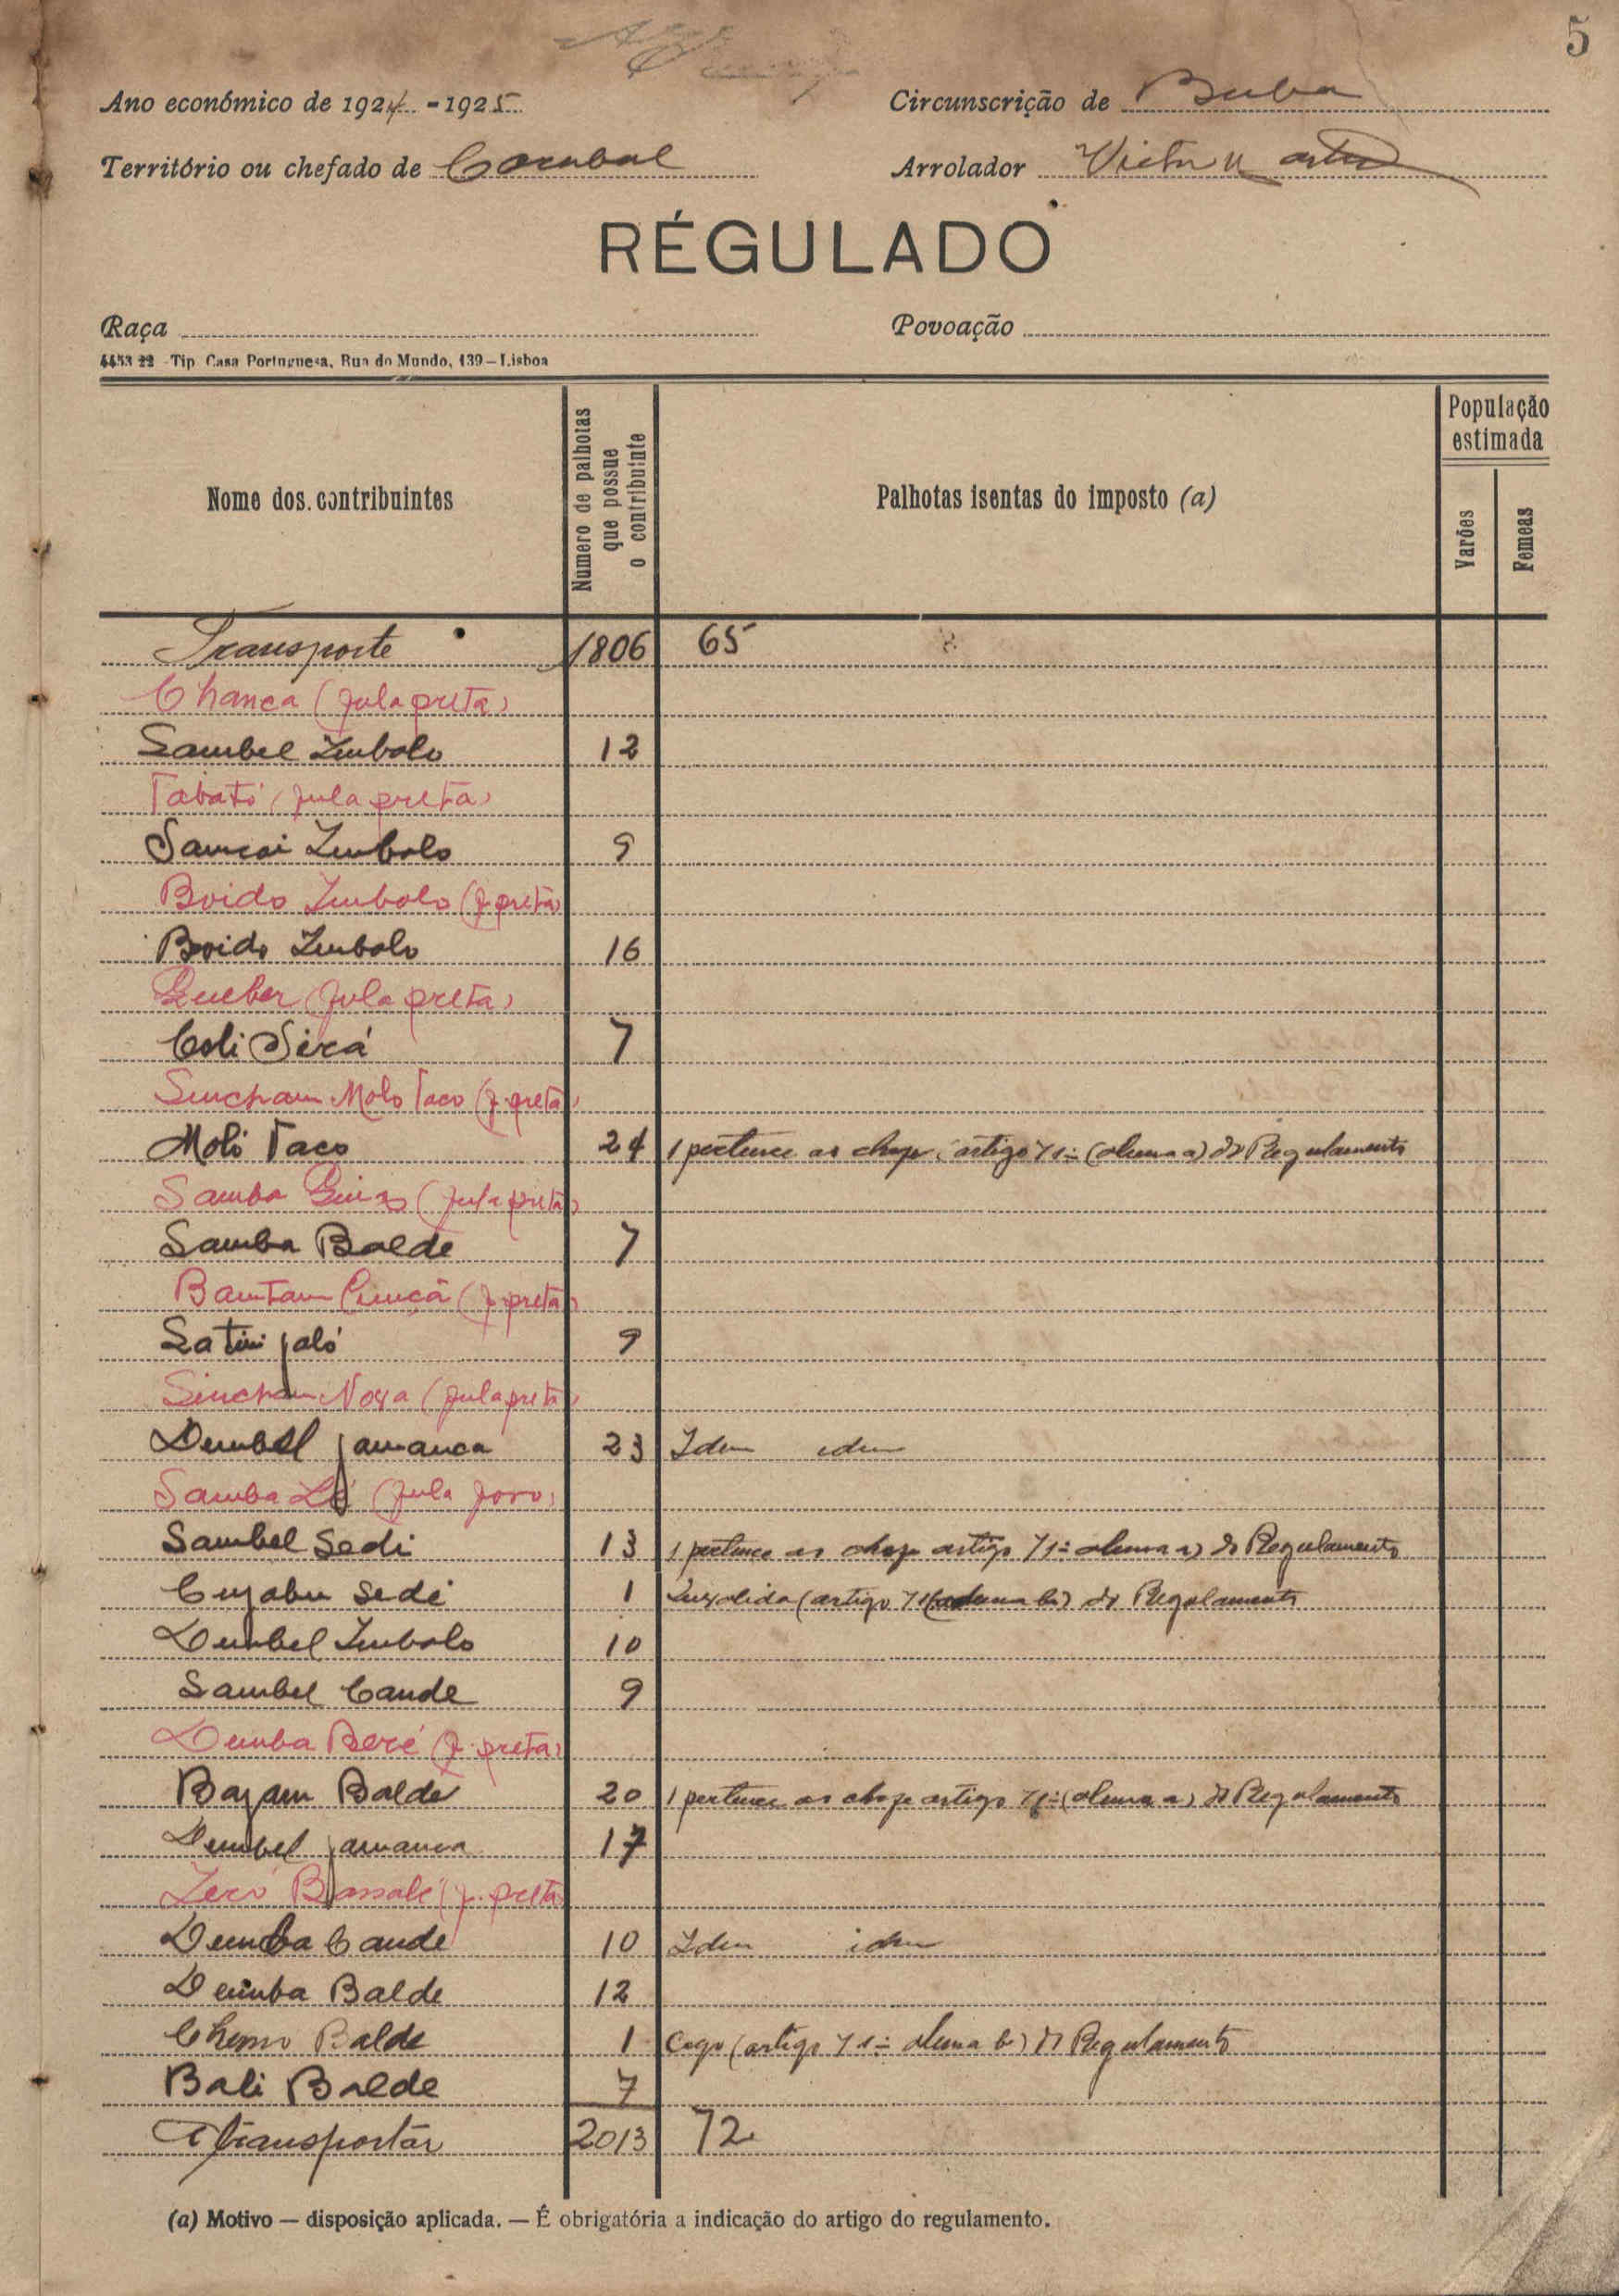 5
Ano económico de 1924 - 1925 Circunscrição de Buba
Território ou chefado de Corubal Arrolador Victor
RÉGULADO
Raça Povoação
4453 22 Tip Casa Portuguesa, Rua do Mundo, 139 – Lisboa
Nome dos contribuintes
Numero de palhotas que possue o contribuinte
Palhotas isentas do imposto (a)
População estimada
Varões
Femeas
Transporte 1806 65
Chanca (fula preta)
Sambel Embalo 12
Tabató (fula preta)
Samcoi Embalo 9
Boido Embalo (f. preta)
Boido Embalo 16
Gueber (fula preta)
Coli Sirá 7
Sincham Molo Taco (f. preta)
Moló Taco 24 1 pertence ao chefe artigo 71º (alinea a) do Regulamento
Samba (fula preta)
Samba Balde 7
Bamtam (f. preta)
Satini jaló 9
Sincham Nova (fula preta)
Dembel jamanca 23 Idem idem
Samba Ló (fula foro)
Sambel Sedi 13 1 pertence ao chefe artigo 71º alinea a) do Regulamento
Cujabu Sedi 1 Invalida (artigo 71 (alinea b) do Regulamento
Dembel Embalo 10
Sambel Cande 9
Demba Beré (f. preta)
Bazam Balde 20 1 pertence ao chefe artigo 71º (alinea a) do Regulamento
Dembel jamanca 17
Iéró Bassalé (f. preta)
Demba Cande 10 Idem idem
Demba Balde 12
Cherno Balde 1 Cego (artigo 71º alinea b) do Regulamento
Bali Balde 7
A transportar 2013 72
(a) Motivo — disposição aplicada. — É obrigatória a indicação do artigo do regulamento.